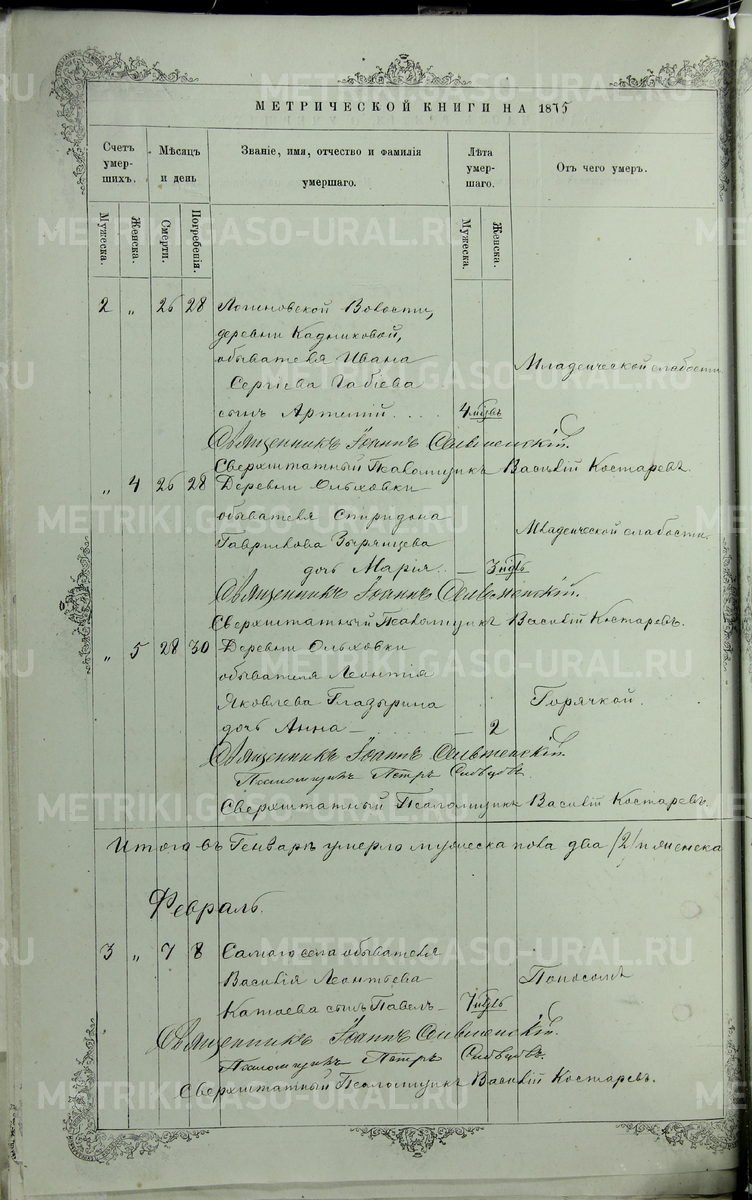 МЕТРИЧЕСКОЙ КНИГИ НА 1875
Счетъ умер-шихъ.
Мѣсяцъ и день
Званіе, имя, отчество и фамилія умершаго.
Лѣта умер-шаго.
Отъ чего умеръ.
Мужеска. Женска. Смерти. Погребенія. Мужеска. Женска.
2 „ 26 28 Логиновской Волости,
деревни Кадниковой,
обывателя Ивана
Сергіева Младенческой слабости
сынъ Артемій 4 мцъ
Священникъ Іоаннъ
Сверхштатный Псаломщикъ Василій Костаревъ.
„ 4 26 28 Деревни Ольховки
обывателя Спиридона
Гаврилова Зырянцева Младенческой слабости.
дочь Марія 3 ндъ
Священникъ Іоаннъ
Сверхштатный Псаломщикъ Василій Костаревъ.
„ 5 28 30 Деревни Ольховки
обывателя Леонтія
Яковлева Глазырина Горячкой.
дочь Анна 2
Священникъ Іоаннъ
Псаломщикъ Петръ
Сверхштатный Псаломщикъ Василій Костаревъ.
Итого въ Генварѣ умерло мужеска пола два /2/ и женска
Февраль.
3 „ 7 8 Самаго села обывателя
Василія Леонтьева Поносомъ
Катаева сынъ Павелъ 7 мцъ
Священникъ Іоаннъ
Псаломщикъ Петръ
Сверхштатный Псаломщикъ Василій Костаревъ.
METRIKI.GASO-URAL.RU